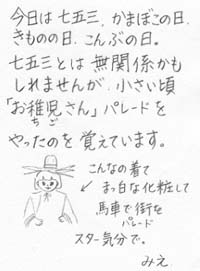 今日は七五三、かまぼこの日、
きものの日、こんぶの日。
七五三とは無関係かも
しれませんが、小さい頃
「お稚児さん」パレードを
ちご
やったのを覚えています。
こんなの着て
← まっ白な化粧して
馬車で街を
パレード
スター気分で。
みえ